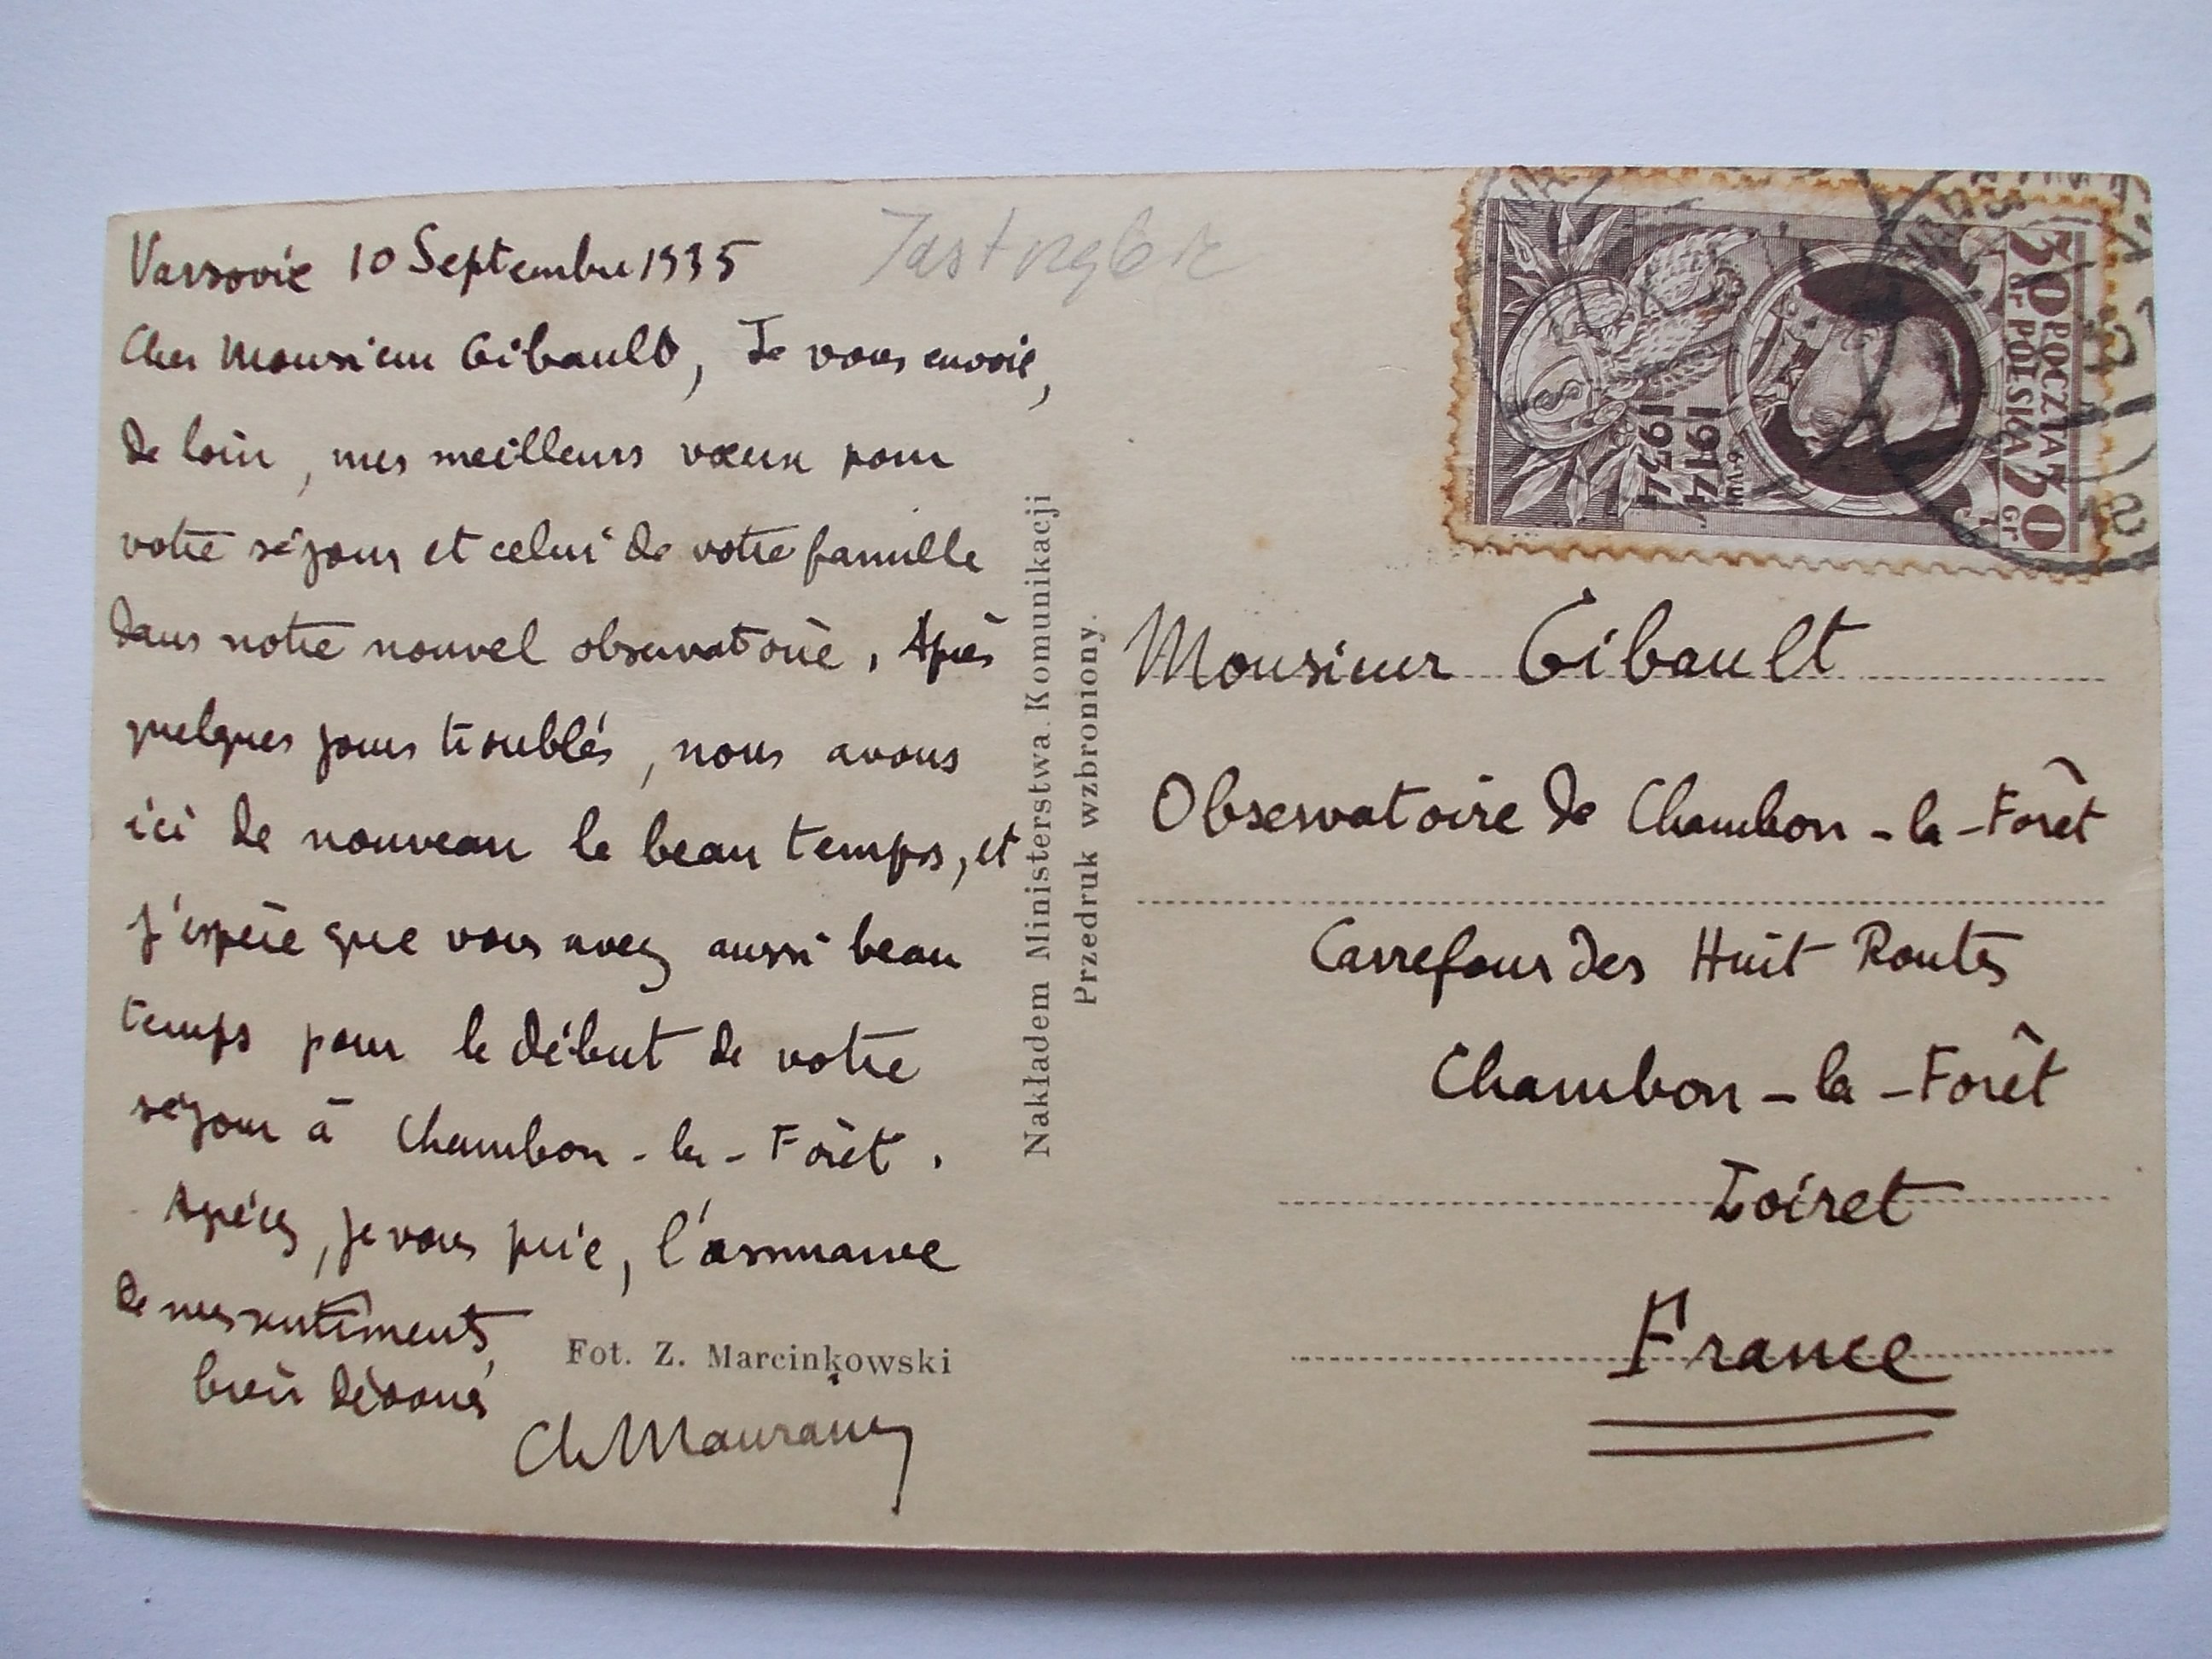 Varsovie 10 Septembre 1935
Cher Monsieur Gibault, Je vous envoie,
de loin, mes meilleurs vœux pour
votre séjour et celui de votre famille
dans notre nouvel observatoire. Après
quelques jours troublés, nous avons
ici de nouveau le beau temps, et
j'espère que vous avez aussi beau
temps pour le début de votre
séjour à Chambon-la-Forêt.
Agréez, je vous prie, l'assurance
de mes sentiments
bien dévoués
Ch Maurain
Fot. Z. Marcinkowski
Nakładem Ministerstwa Komunikacji
Przedruk wzbroniony.
30 POCZTA 30
gr POLSKA gr
6 VIII
1914
1934
Monsieur Gibault
Observatoire de Chambon-la-Forêt
Carrefour des Huit Routes
Chambon-la-Forêt
Loiret
France